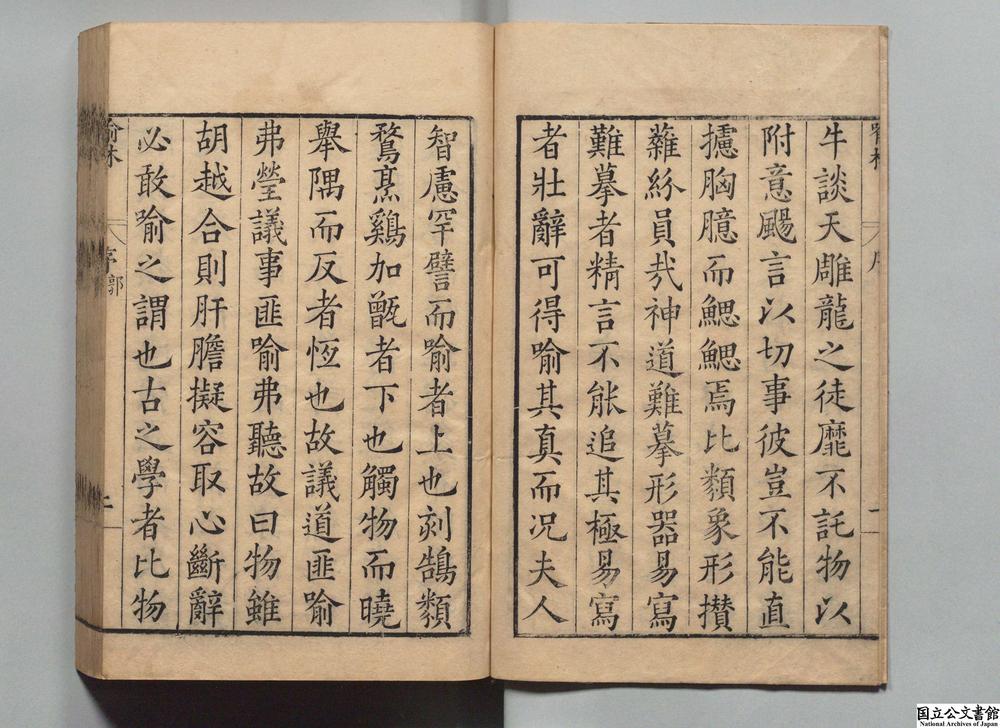 牛談天雕龍之徒靡不託物以
附意颺言以切事彼豈不能直
攄胸臆而鰓鰓焉比類象形攅
蕹紛員㦲神道難摹形器易寫
難摹者精言不能追其極易寫
者壯辭可得喻其真而况夫人
智慮罕譬而喻者上也刻鵠類
鶩烹鷄加甑者下也觸物而曉
舉隅而反者恆也故議道匪喻
弗瑩議事匪喻弗聽故曰物雖
胡越合則肝膽擬容取心斷辭
必敢喻之謂也古之學者比物
喻林
序郭
二
国立公文書館
National Archives of Japan